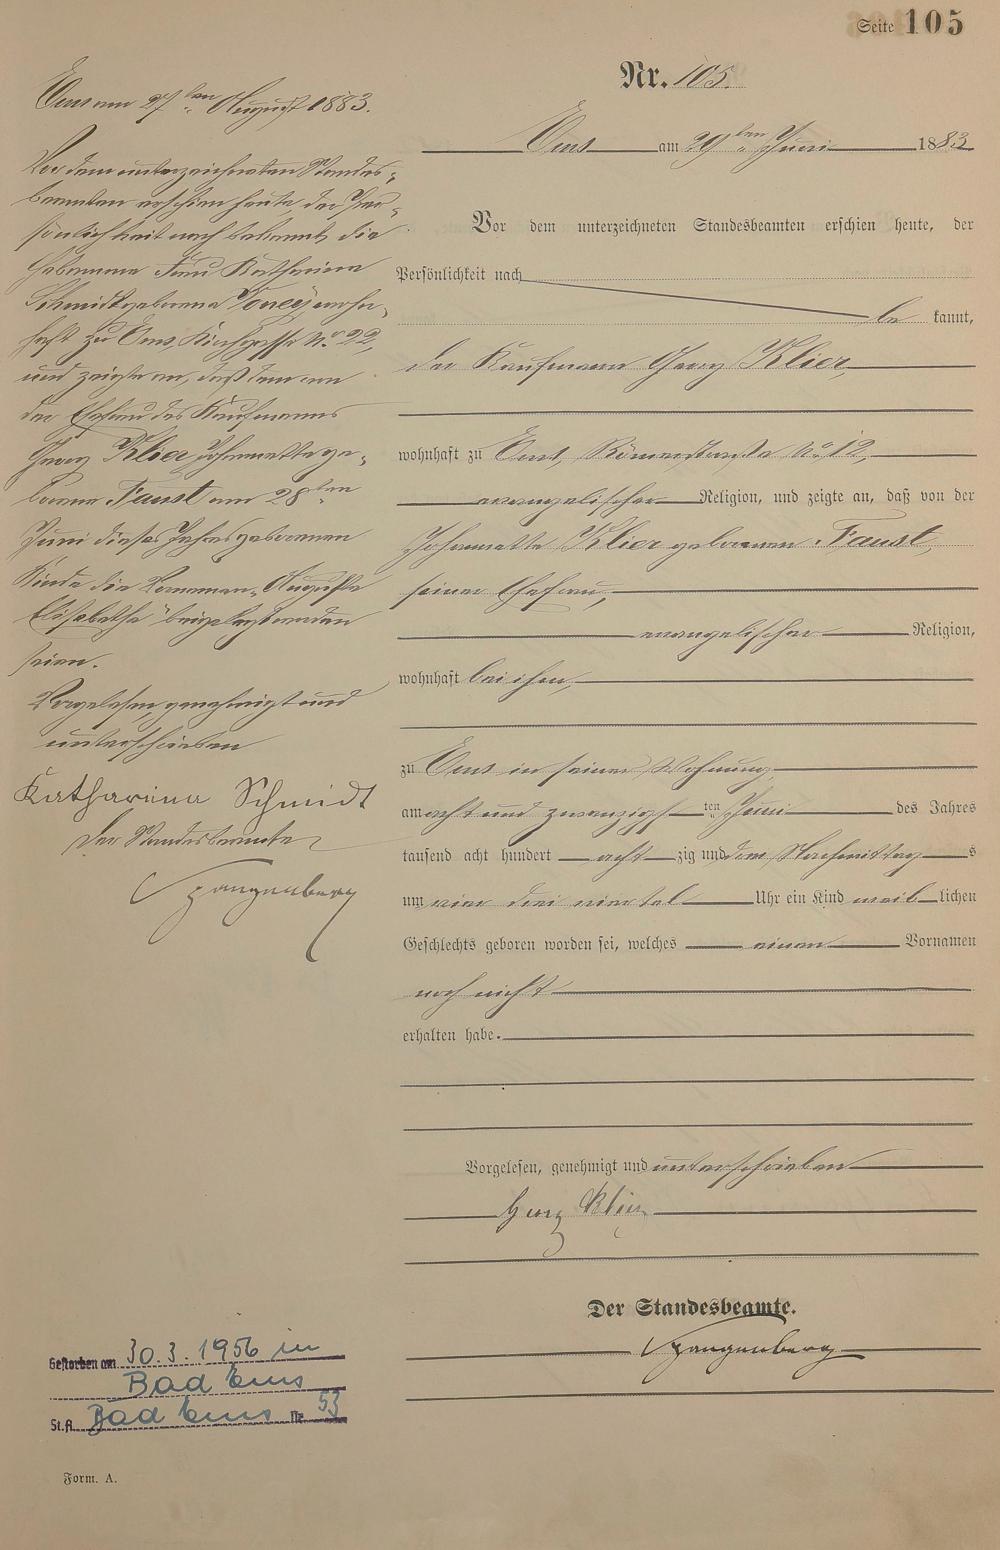 Seite 105
Nr. 105.
Ems am 29ten Juni 1883
Vor dem unterzeichneten Standesbeamten erschien heute, der
Persönlichkeit nach
be kannt,
der Kaufmann Georg Klier,
wohnhaft zu Ems, Römerstraße No 12,
evangelischer Religion, und zeigte an, daß von der
Johannette Klier geborenen Faust
seiner Ehefrau,
evangelischer Religion,
wohnhaft bei ihm,
zu Ems in seiner Wohnung,
am acht und zwanzigsten Juni des Jahres
tausend acht hundert acht zig und drei, Nachmittags
um vier drei viertel Uhr ein Kind weiblichen
Geschlechts geboren worden sei, welches einen Vornamen
noch nicht
erhalten habe.
Vorgelesen, genehmigt und unterschrieben
Georg Klier
Der Standesbeamte.
Spangenberg
Ems am 27ten August 1883.
Vor dem unterzeichneten Standes-
beamten erschien heute, der Per-
sönlichkeit nach bekannt, die
Hebamme Frau Katharina
Schmidt geborene wohn-
haft zu Ems, Kirchgasse No 22,
und zeigte an, daß dem von
der Ehefrau des Kaufmanns
Georg Klier Johannette ge-
borene Faust am 28ten
Juni dieses Jahres geborenen
Kinde die Vornamen „Auguste
Elisabetha" beigelegt worden
seien.
Vorgelesen, genehmigt und
unterschrieben
Katharina Schmidt
Der Standesbeamte
Spangenberg
Gestorben am 30.3.1956 in
Bad Ems
St.A. Bad Ems Nr 53
Form. A.